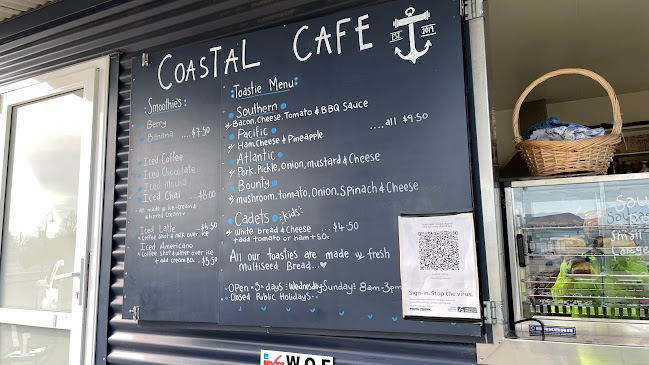 COASTAL CAFE
EST 2019
Smoothies
Berry
Banana ....$7.50
Iced Coffee
Iced Chocolate
Iced Mocha
Iced Chai ....$8.00
All made w ice-cream &
whipped cream
Iced Latte ....$6.50
Coffee shot & milk over ice
Iced Americano
Coffee shot & water over ice
+ add cream 80c - $5.50
Toastie Menu
Southern
w Bacon, Cheese, Tomato & BBQ Sauce
....all $9.50
Pacific
w Ham, Cheese & Pineapple
Atlantic
w Pork, Pickle, Onion, mustard & Cheese
Bounty
w mushroom, tomato, Onion, Spinach & Cheese
Cadets kids:
w White bread & Cheese ... $4.50
+ add tomato or ham + 50c
All our toasties are made w fresh
multiseed Bread...
Open • 5 days: Wednesday - Sunday: 8am-3pm
Closed Public Holidays
Sign-in. Stop the virus.
Small
W.O.F